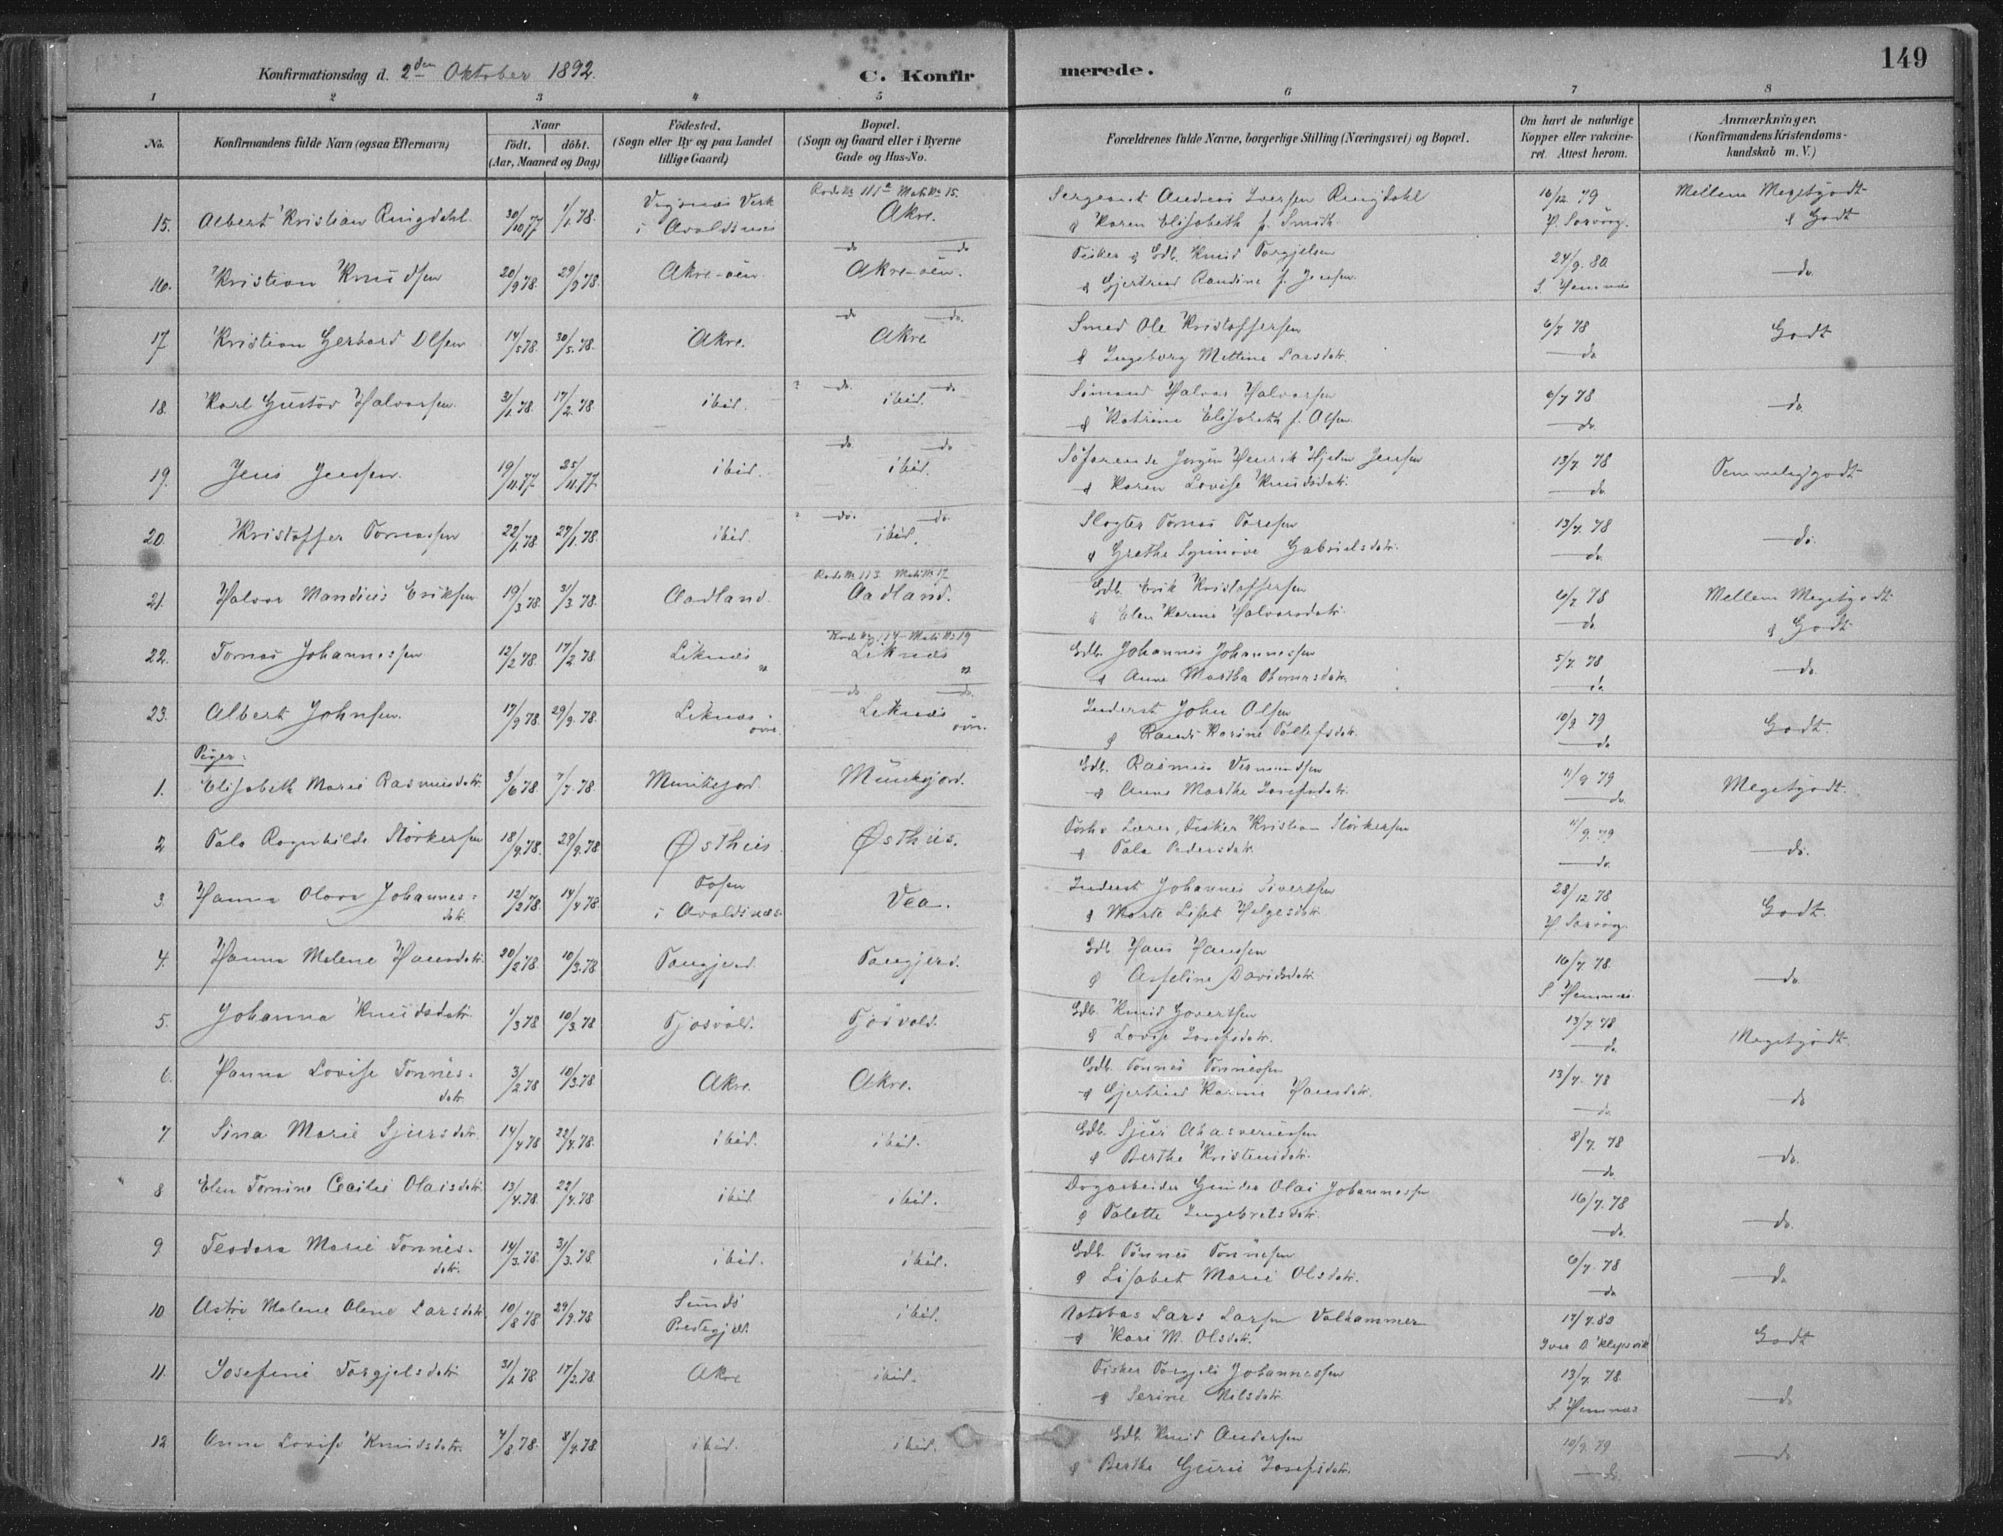 149
Konfirmationsdag d. 2den Oktober 1892.
C. Konfirmerede.
1 2 3 4 5 6 7 8
No.
Konfirmandens fulde Navn (ogsaa Efternavn)
Naar
födt. döbt.
(Aar, Maaned og Dag)
Födested.
(Sogn eller By og paa Landet
tillige Gaard)
Bopæl.
(Sogn og Gaard eller i Byerne
Gade og Hus-No.
Forældrenes fulde Navne, borgerlige Stilling (Næringsvei) og Bopæl.
Om havt de naturlige
Kopper eller vakcine-
ret. Attest herom.
Anmærkninger.
(Konfirmandens Kristendoms-
kundskab m. V.)
15. Albert Kristian Ringdahl 30/10 77 1/1 78. Vigsnæs Verk i Avaldsnæs Akre. Sergeant Andreas Iversen Ringdahl & Karen Elisabeth f. Smith 16/12 79 Mellem Megetgodt & Godt
16. Kristian Knudsen 20/9 78. 29/9 78. Akre-öen. do do Akre-öen. Fisker & Gdb. Knud Torgjelsen & Gjertrud Randine f. Jensen. 24/9. 80 S. Hemnæs do.
17 Kristian Gerhard Olsen 14/5 78. 30/5. 78. Akre. do do. Akre Smed Ole Kristoffersen & Ingeborg Mettine Larsdatr. 6/7 78 do Godt
18. Karl Gustav Halvorsen. 31/1 78. 17/2. 78. ibid. do. do ibid. Sömand Halvor Halvorsen & Katrine Elisabeth f. Olsen. 6/7 78 do. do.
19. Jens Jensen. 19/11.77. 25/11.77. ibid. do. do ibid. Söfarende Jörgen Henrik Hjelm Jensen & Karen Lovise Knudsdatr. 13/7. 78 do. Temmeliggodt
20. Kristoffer Tornassen 22/1 78. 27/1. 78. ibid. do. do. ibid. Slagter Tornas Toresen & Grethe Synnöve Gabrielsdatr. 13/7. 78 do. do.
21. Halvor Mandius Eriksen 19/3 78. 31/3 78. Aadland. Aadland. Gdb. Erik Kristoffersen & Elen Karine Halvorsdatr. 6/7 78 do Mellem Megetgodt & Godt
22. Tornas Johannessen 12/2 78. 17/2 78. Liknæs Liknæs Gdb. Johannes Johannessen & Anne Martha 5/7 78 do.
23. Albert Johnsen. 17/9 78. 29/9. 78. Liknæs övre. do do. Liknæs övre. Inderst John Olsen & Randi Karine Tollefsdatr. 10/9 79 do Godt.
Piger:
1. Elisabeth Marie Rasmusdatr. 3/6 78 7/7. 78. Munkejord Munkejord. Gdb. Rasmus Vermundsen & Anne Marthe Josefsdatr. 11/9 79 do. Megetgodt.
2 Tala Ragnhilde Störkersen 18/9. 78. 29/9. 78 Østhus Østhus. Lærer, Fisker Kristian Störkersen & Tala Pedersdatr. 11/9. 79 do. do.
3. Hanna Olava Johannesdatr. 12/2 78. 14/4 78. i Avaldsnæs. Vea. Inderst Johannes Sivertsen & Marte Liset Helgesdatr. 28/12 78 Godt.
4. Hanna Malene Hansdatr. 20/2 78. 10/3. 78. Tangjerd. Tangjerd. Gdb. Hans Hansen & Asseline Davidsdatr. 16/7. 78. S Hemnæs. do.
5. Johanna Knudsdatr. 1/3 78 10/3. 78 Tjösvold. Tjösvold. Gdb. Knud Govertsen & Lovise Josefsdatr. 13/7. 78 do. Megetgodt.
6. Hanna Lovise Tönnesdatr. 3/2 78 10/3 78 Akre. Akre. Gdb. Tönnes Tönnesen & Gjertrud Karine Hansdatr. 13/7. 78 do do
7 Sina Marie Sjursdatr. 14/4 78 22/4. 78. ibid. ibid. Gdb. Sjur Ahasverussen & Berthe Kristensdatr. 8/7 78 do. do.
8 Elen Tomine Cecilie Olaisdatr. 13/4. 78 22/4. 78 ibid ibid. Dagarbeider Gunder Olai Johannessen & Talette Ingebretsdatr. 16/7. 78 do. do.
9 Teodora Marie Tönnesdatr. 14/3. 78. 31/3. 78. ibid. ibid. Gdb. Tönnes Tönnesen & Lisabet Marie Olsdatr. 6/7. 78 do do
10. Malene Olene Larsdatr. 10/8 78 29/9. 78 Sunds Prestegjæld. ibid. Notebas Lars Larsen Valhammer & Kari M. Olsdatr. 17/7. 80 Iver O. Klepsvik Godt
11. Josefine Torgjelsdatr. 31/1 78 17/2. 78. Akre ibid. Fisker Torgjels Johannessen & Serine Nilsdatr. 13/7. 78. S. Hemnæs do
12. Anna Lovise Knudsdatr. 7/8. 78. 8/9. 78 ibid. ibid. Gdb. Knud Andersen & Berthe Gurie Josefsdatr. 10/9. 79 do. do